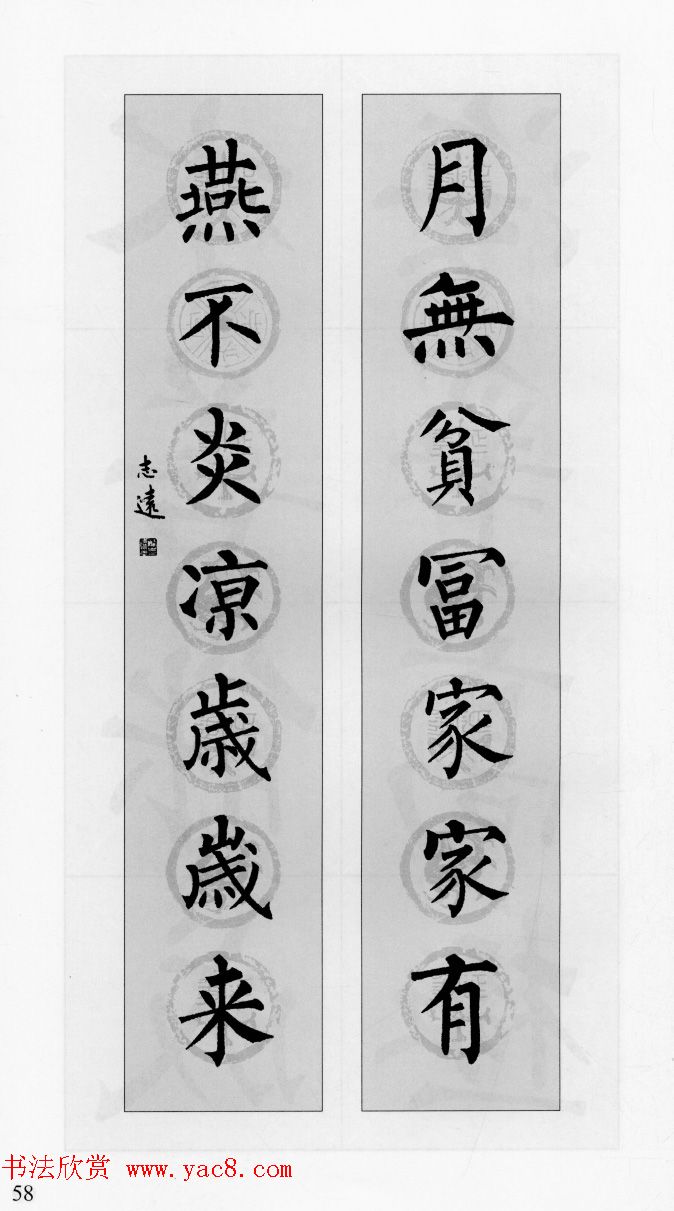 月無貧冨家家有
燕不炎凉歲歲来
志遠
书法欣赏 www.yac8.com
58